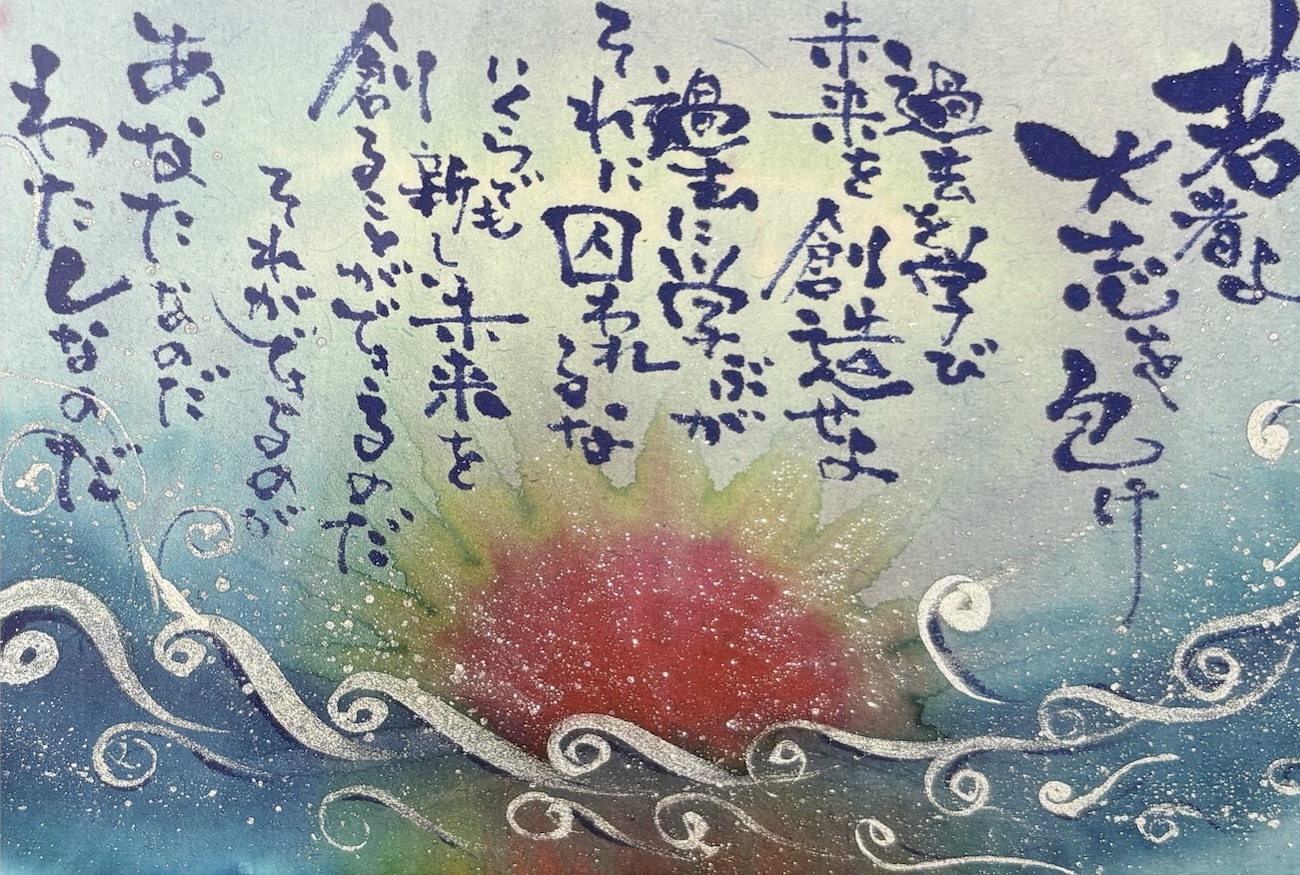 若者よ
大志を包け
過去を学び
未来を創造せよ
過去に学ぶが
それに囚われるな
いくらでも
新しい未来を
創ることができるのだ
それができるのが
あなたなのだ
わたしなのだ